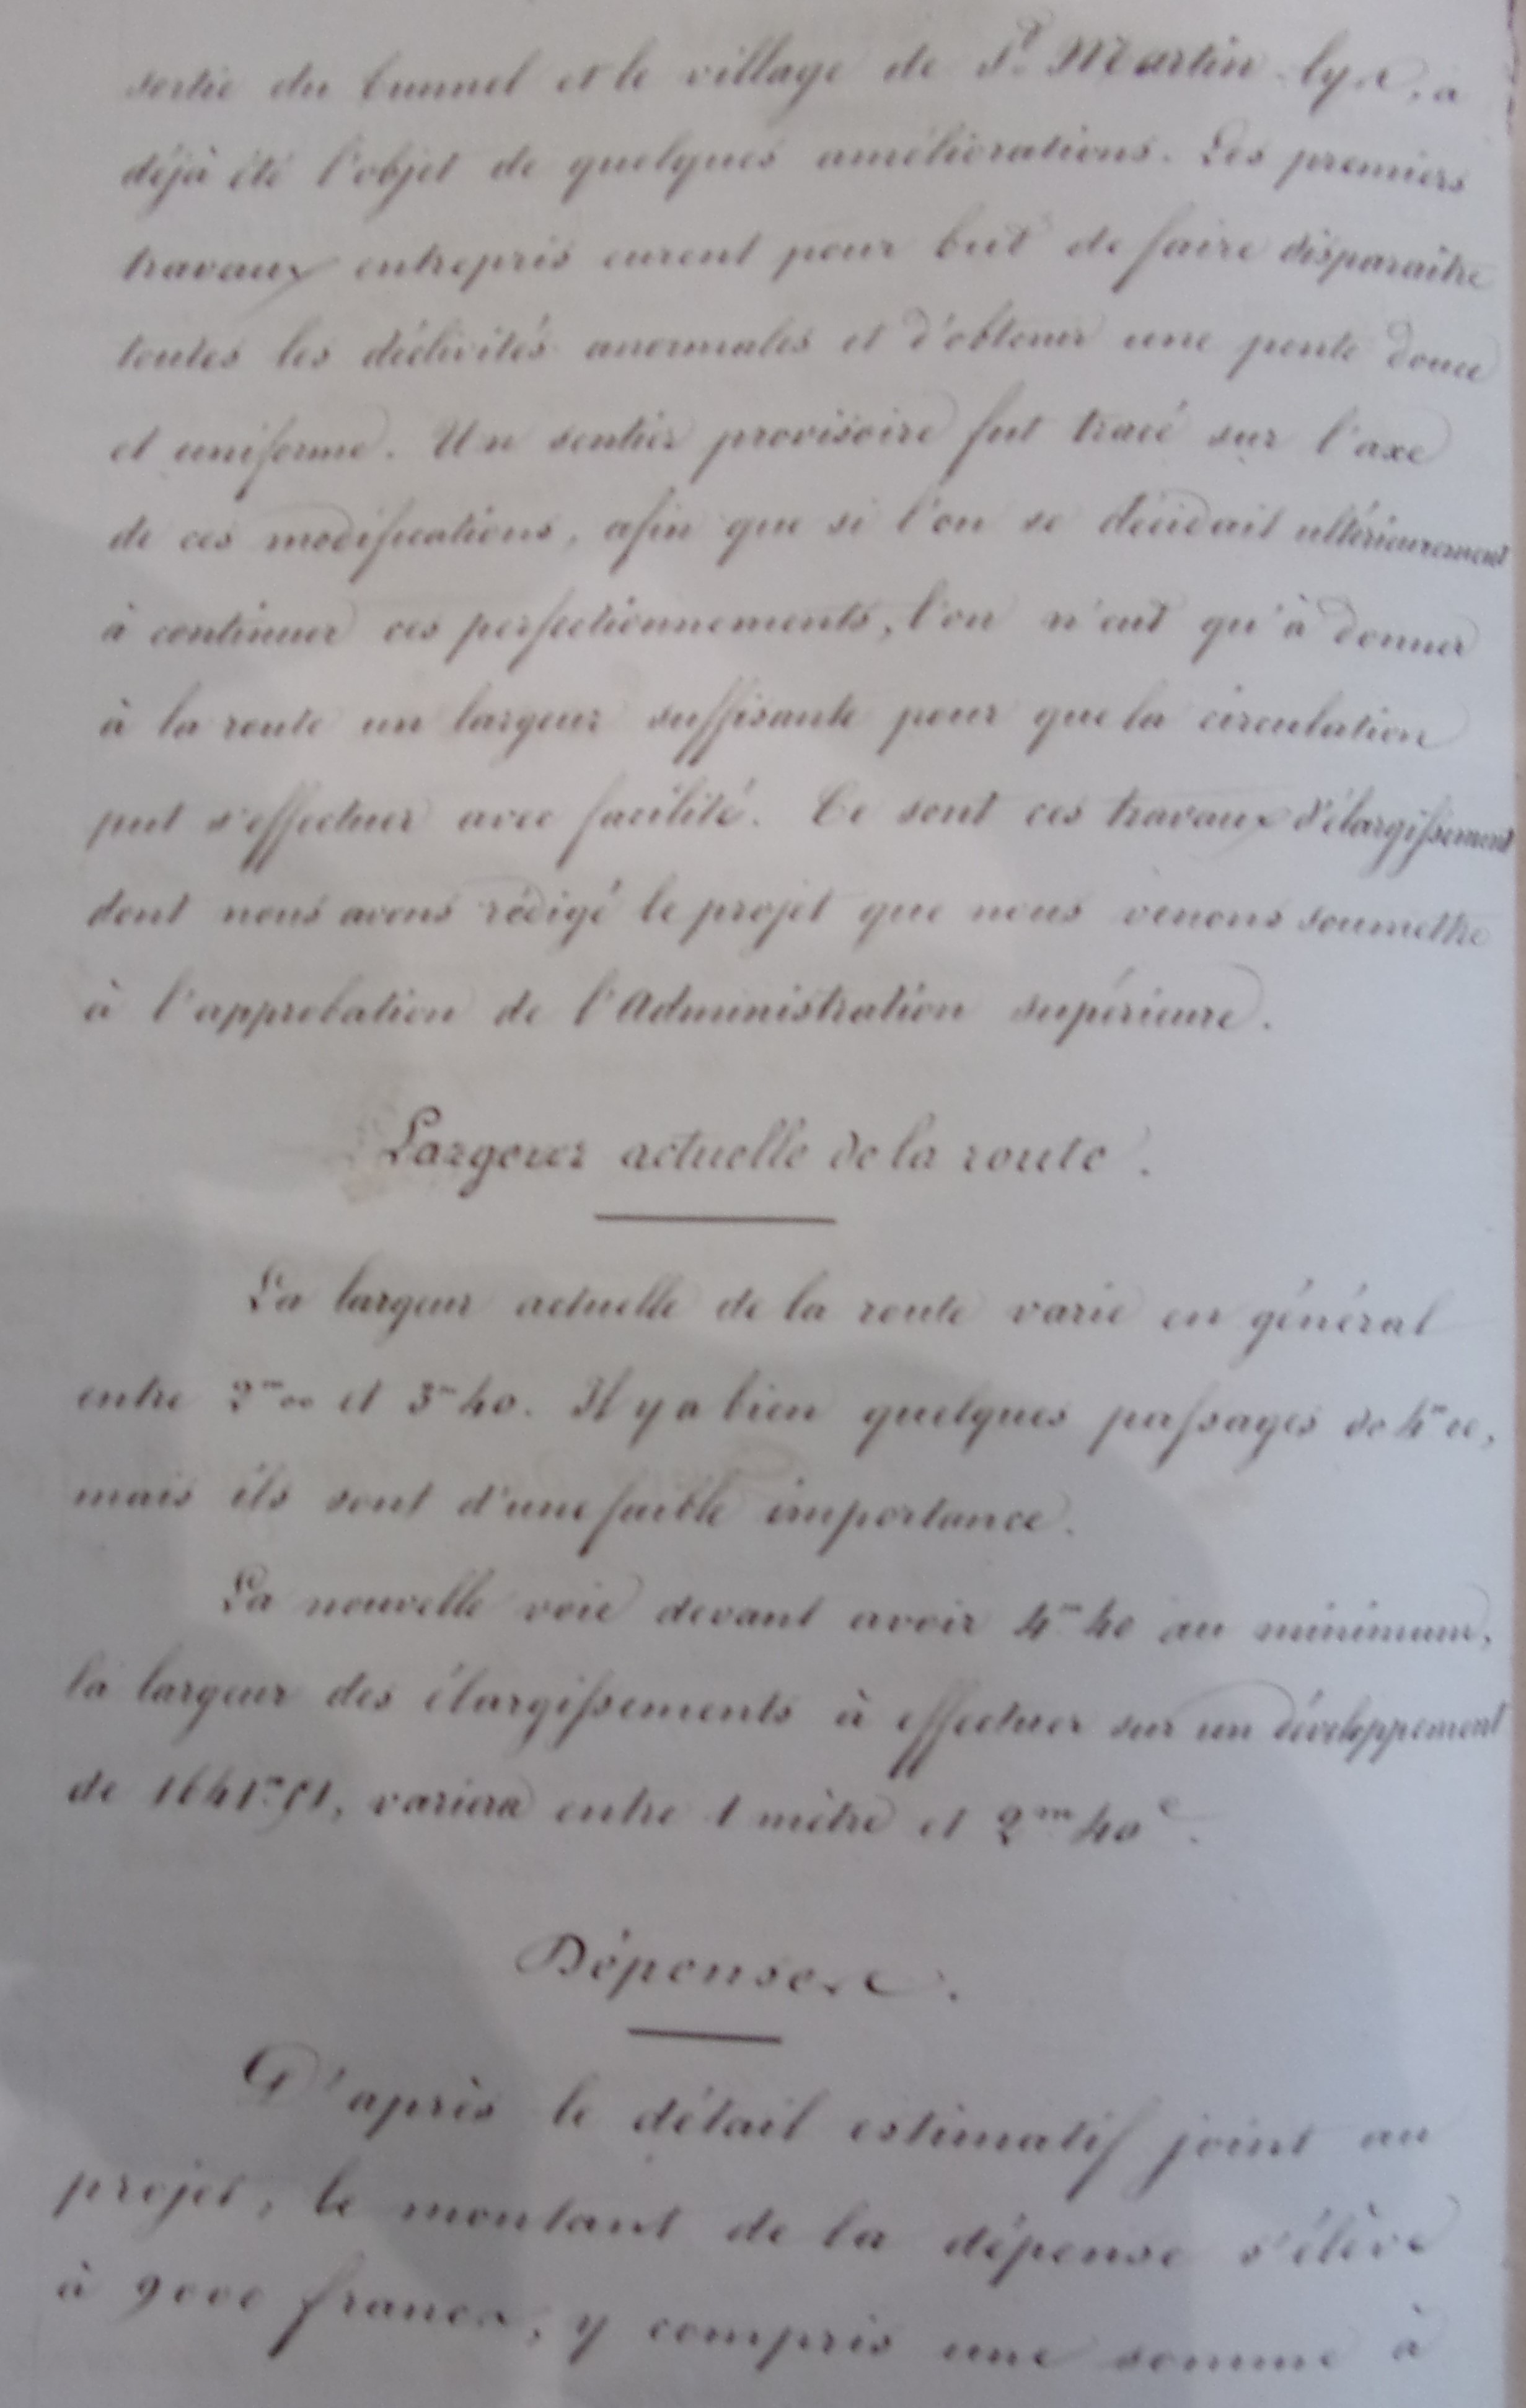 sortie du tunnel et le village de St Martin lys, a
déjà été l'objet de quelques améliorations. Les premiers
travaux entrepris eurent pour but de faire disparaître
toutes les déclivités anormales et d'obtenir une pente douce
et uniforme. Un sentier provisoire fut tracé sur l'axe
de ces modifications, afin que si l'on se décidait ultérieurement
à continuer ces perfectionnements, l'on n'eut qu'à donner
à la route un largeur suffisante pour que la circulation
put s'effectuer avec facilité. Ce sont ces travaux d'élargissement
dont nous avons rédigé le projet que nous venons soumettre
à l'approbation de l'Administration supérieure.
Largeur actuelle de la route.
La largeur actuelle de la route varie en général
entre 2m00 et 3m40. Il y a bien quelques passages de 4m00,
mais ils sont d'une faible importance.
La nouvelle voie devant avoir 4m40 au minimum,
la largeur des élargissements à effectuer sur un développement
de 1641m51, variera entre 1 mètre et 2m40c.
Dépenses.
D'après le détail estimatif joint au
projet, le montant de la dépense s'élève
à 9000 francs, y compris une somme à